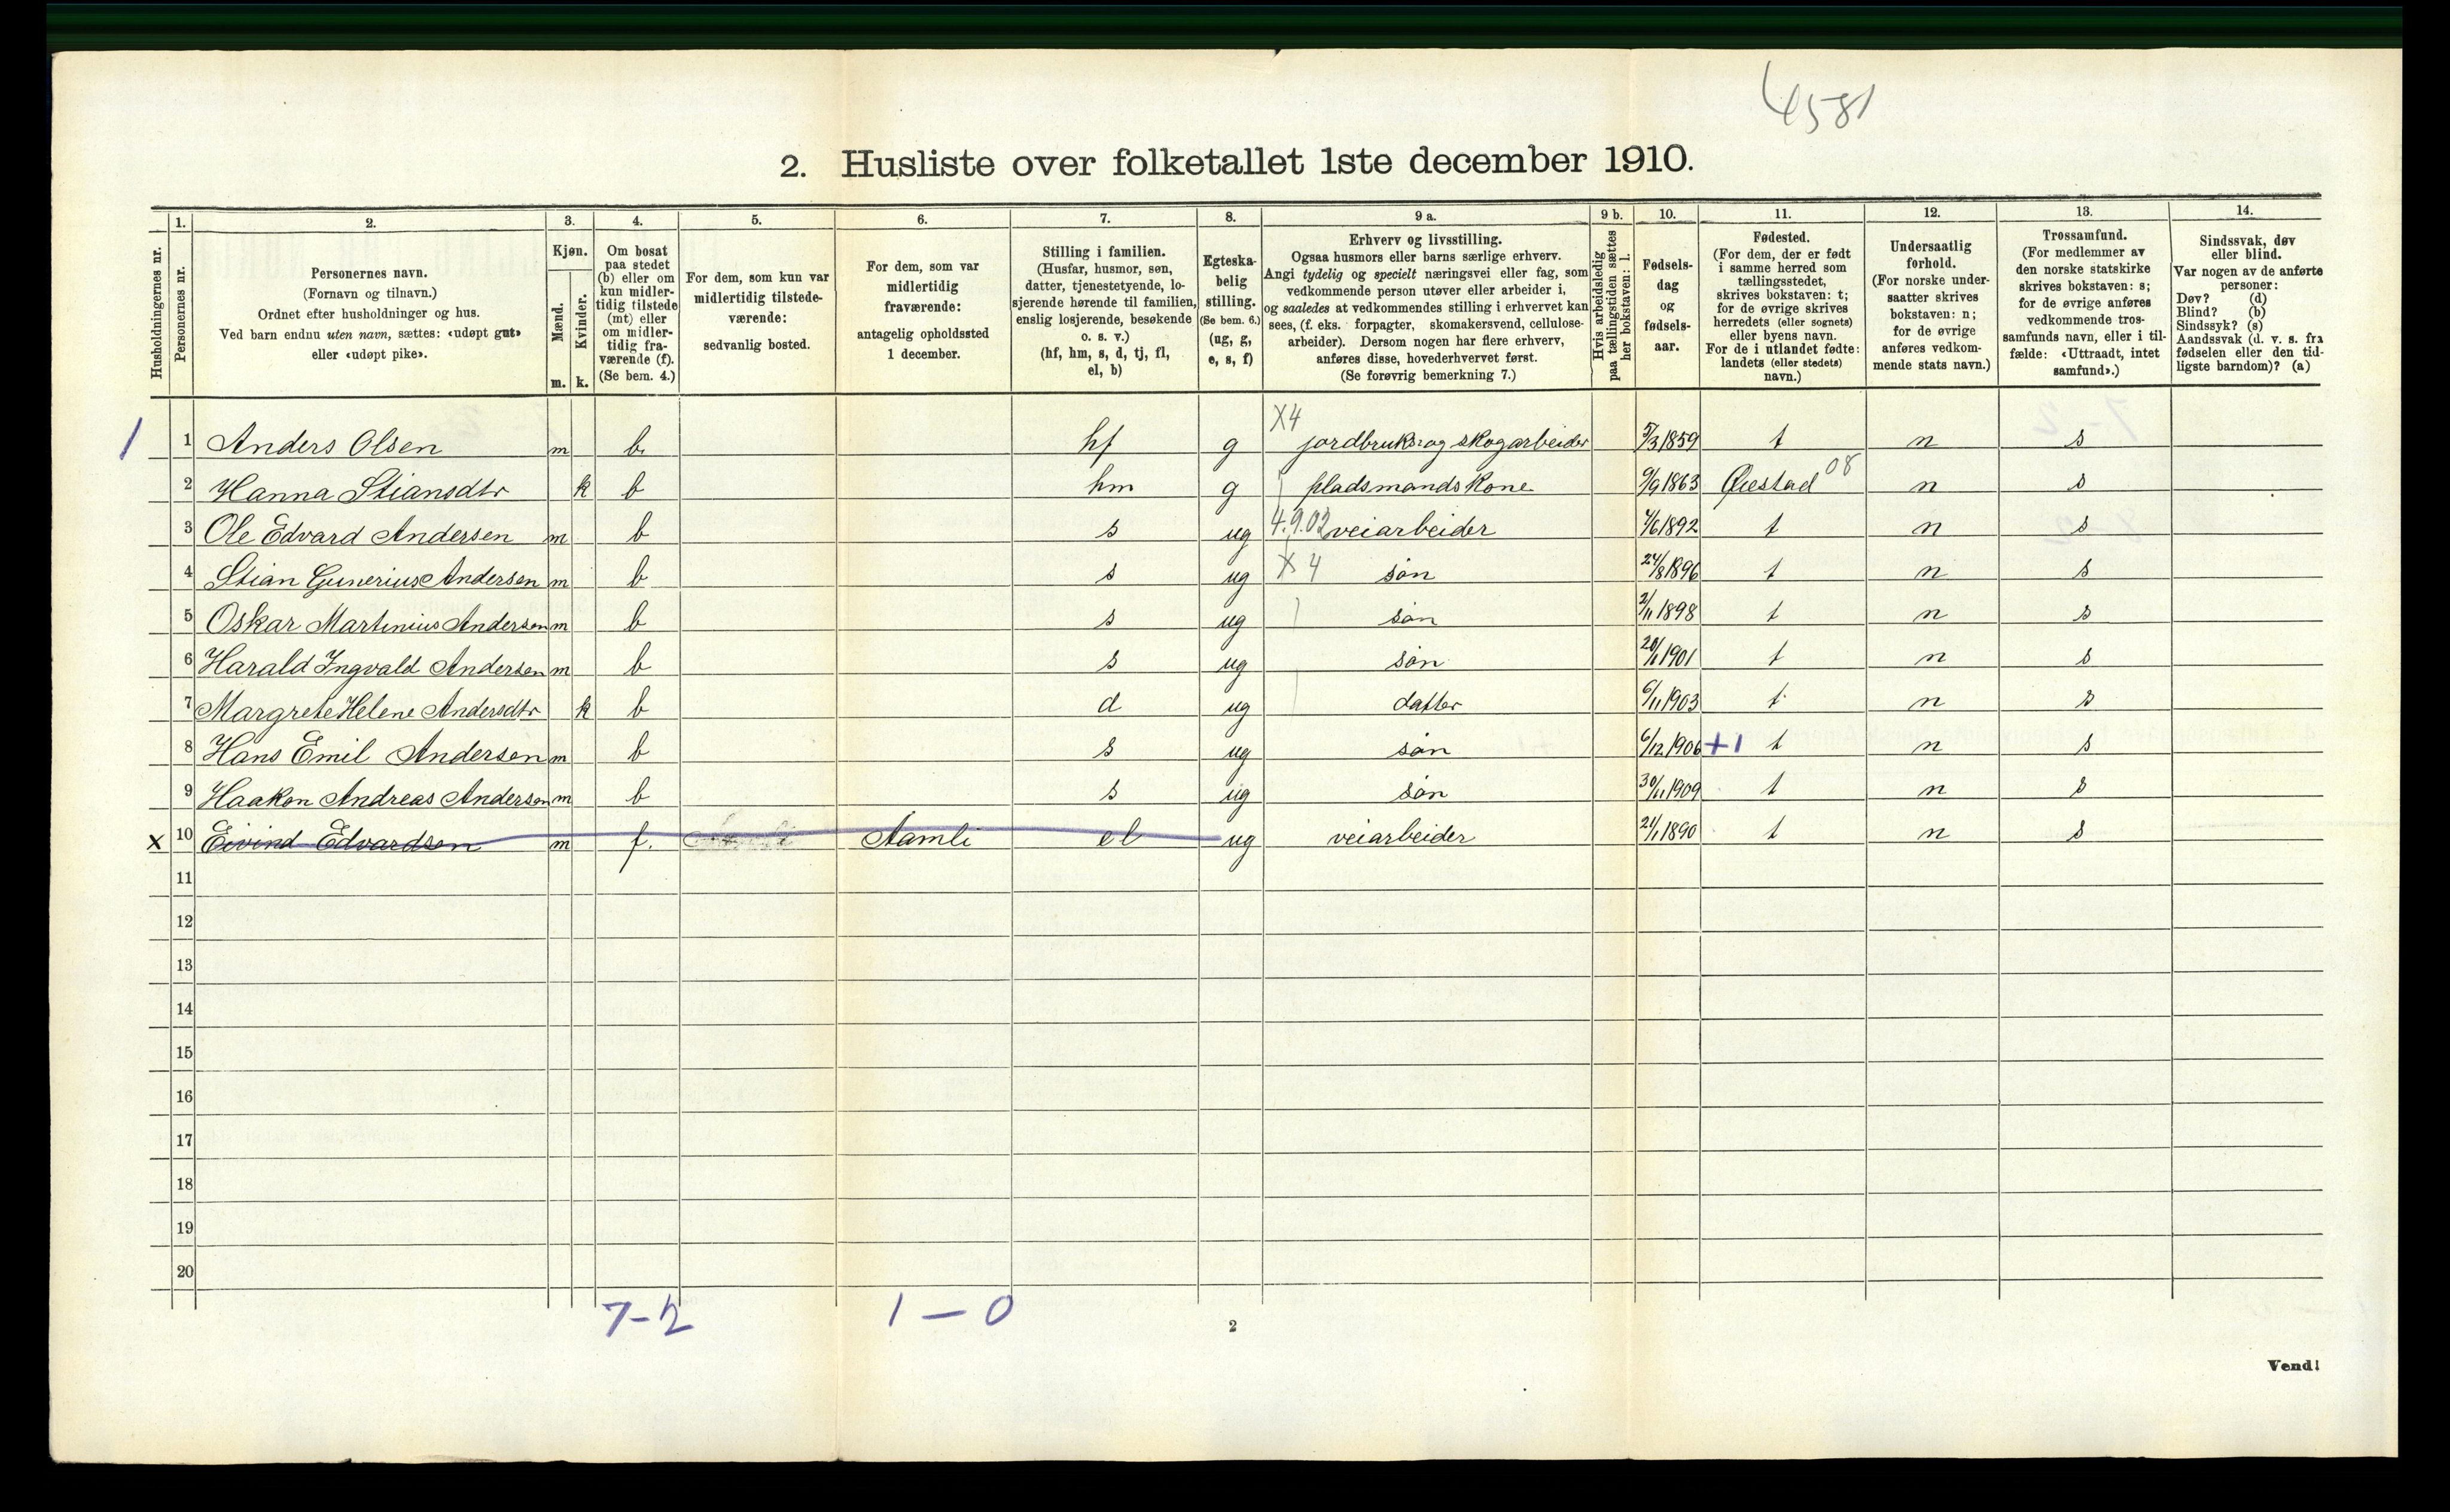 4581
2. Husliste over folketallet 1ste december 1910.
1. 2. 3. 4. 5. 6. 7. 8. 9 a. 9 b. 10. 11. 12. 13. 14.
Husholdningernes nr.
Personernes nr.
Personernes navn.
(Fornavn og tilnavn.)
Ordnet efter husholdninger og hus.
Ved barn endnu uten navn, sættes: «udøpt gut»
eller «udøpt pike».
Kjøn.
Mænd.
Kvinder.
m. k.
Om bosat
paa stedet
(b) eller om
kun midler-
tidig tilstede
(mt) eller
om midler-
tidig fra-
værende (f).
(Se bem. 4.)
For dem, som kun var
midlertidig tilstede-
værende:
sedvanlig bosted.
For dem, som var
midlertidig
fraværende:
antagelig opholdssted
1 december.
Stilling i familien.
(Husfar, husmor, søn,
datter, tjenestetyende, lo-
sjerende hørende til familien,
enslig losjerende, besøkende
o. s. v.)
(hf, hm, s, d, tj, fl,
el, b)
Egteska-
belig
stilling.
(Se bem. 6.)
(ug, g,
e, s, f)
Erhverv og livsstilling.
Ogsaa husmors eller barns særlige erhverv.
Angi tydelig og specielt næringsvei eller fag, som
vedkommende person utøver eller arbeider i,
og saaledes at vedkommendes stilling i erhvervet kan
sees, (f. eks. forpagter, skomakersvend, cellulose-
arbeider). Dersom nogen har flere erhverv,
anføres disse, hovederhvervet først.
(Se forøvrig bemerkning 7.)
Hvis arbeidsledig
paa tællingstiden sættes
her bokstaven: l.
Fødsels-
dag
og
fødsels-
aar.
Fødested.
(For dem, der er født
i samme herred som
tællingsstedet,
skrives bokstaven: t;
for de øvrige skrives
herredets (eller sognets)
eller byens navn.
For de i utlandet fødte:
landets (eller stedets)
navn.)
Undersaatlig
forhold.
(For norske under-
saatter skrives
bokstaven: n;
for de øvrige
anføres vedkom-
mende stats navn.)
Trossamfund.
(For medlemmer av
den norske statskirke
skrives bokstaven: s;
for de øvrige anføres
vedkommende tros-
samfunds navn, eller i til-
fælde: «Uttraadt, intet
samfund».)
Sindssvak, døv
eller blind.
Var nogen av de anførte
personer:
Døv? (d)
Blind? (b)
Sindssyk? (s)
Aandssvak (d. v. s. fra
fødselen eller den tid-
ligste barndom)? (a)
X4
1 1 Anders Olsen m b. hf g jordbruks og skogarbeider 5/3 1859 t n s
2 Hanna Stiansdtr k b hm g pladsmandskone 9/9 1863 Øiestad 08 n s
3 Ole Edvard Andersen m b s ug 4.9.02 veiarbeider 4/6 1892 t n s
4 Stian Gunerius Andersen m b s ug X 4 søn 24/8 1896 t n s
5 Oskar Martinius Andersen m b s ug søn 2/11 1898 t n s
6 Harald Ingvald Andersen m b s ug søn 1901 t n s
7 Margrete Helene Andersdtr k b d ug datter 6/11 1903 t n s
8 Hans Emil Andersen m b s ug søn 6/12 1906 +1 t n s
9 Haakon Andreas Andersen m b s ug søn 30/11 1909 t n s
x 10 Eivind Edvardsen m f. Aamli el ug veiarbeider 24/1 1890 t n s
11
12
13
14
15
16
17
18
19
20
7-2 1-0
2
Vend!